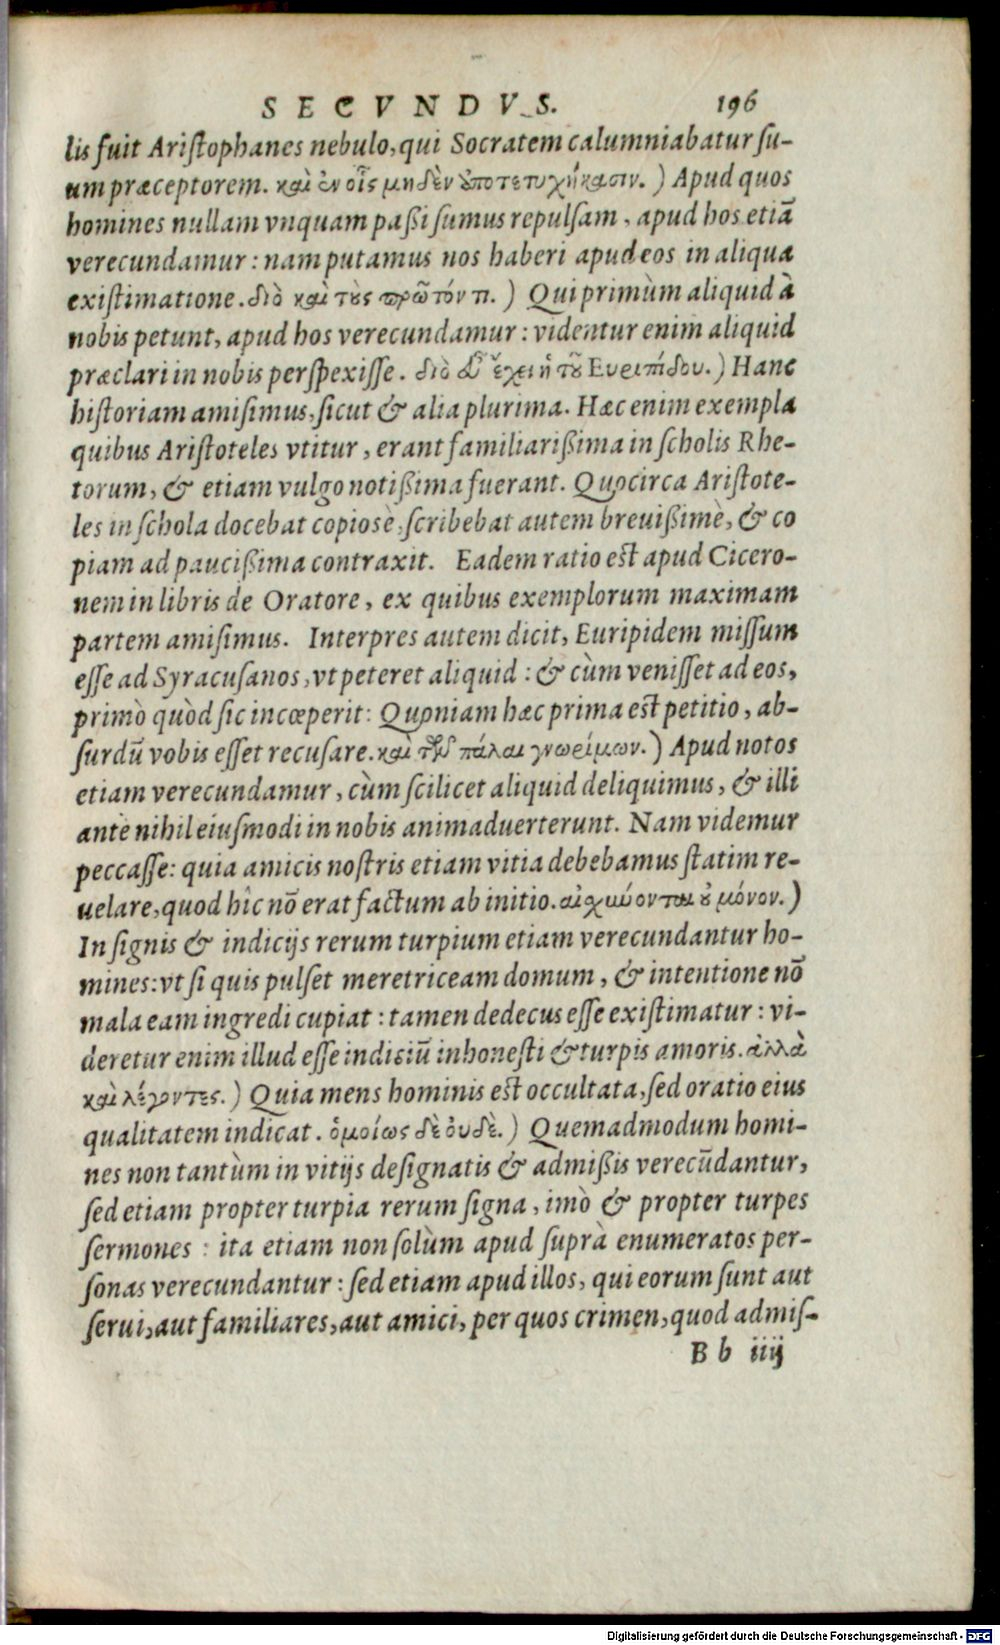 SECVNDVS. 196
lis fuit Aristophanes nebulo, qui Socratem calumniabatur su-
um præceptorem. καὶ ἐν οἷς μηδὲν ἀποτετυχήκασιν.) Apud quos
homines nullam vnquam paßi sumus repulsam, apud hos etiã
verecundamur: nam putamus nos haberi apud eos in aliqua
existimatione. διὸ καὶ τοὺς πρῶτόν τι.) Qui primùm aliquid à
nobis petunt, apud hos verecundamur: videntur enim aliquid
præclari in nobis perspexisse. διὸ εὖ ἔχει ἡ τοῦ Ευριπίδου.) Hanc
historiam amisimus, sicut & alia plurima. Hæc enim exempla
quibus Aristoteles vtitur, erant familiarißima in scholis Rhe-
torum, & etiam vulgo notißima fuerant. Quocirca Aristote-
les in schola docebat copiosè, scribebat autem breuißimè, & co
piam ad paucißima contraxit. Eadem ratio est apud Cicero-
nem in libris de Oratore, ex quibus exemplorum maximam
partem amisimus. Interpres autem dicit, Euripidem missum
esse ad Syracusanos, vt peteret aliquid: & cùm venisset ad eos,
primò quòd sic incœperit: Quoniam hæc prima est petitio, ab-
surdũ vobis esset recusare. καὶ τῶν πάλαι γνωρίμων.) Apud notos
etiam verecundamur, cùm scilicet aliquid deliquimus, & illi
antè nihil eiusmodi in nobis animaduerterunt. Nam videmur
peccasse: quia amicis nostris etiam vitia debebamus statim re-
uelare, quod hîc nõ erat factum ab initio. αἰσχύνονται οὐ μόνον.)
In signis & indicijs rerum turpium etiam verecundantur ho-
mines: vt si quis pulset meretriceam domum, & intentione nõ
mala eam ingredi cupiat: tamen dedecus esse existimatur: vi-
deretur enim illud esse indiciũ inhonesti & turpis amoris. ἀλλὰ
καὶ λέγοντες.) Quia mens hominis est occultata, sed oratio eius
qualitatem indicat. ὁμοίως δὲ οὐδὲ.) Quemadmodum homi-
nes non tantùm in vitijs designatis & admißis verecũdantur,
sed etiam propter turpia rerum signa, imò & propter turpes
sermones: ita etiam non solùm apud suprà enumeratos per-
sonas verecundantur: sed etiam apud illos, qui eorum sunt aut
serui, aut familiares, aut amici, per quos crimen, quod admis-
Bb iiij
Digitalisierung gefördert durch die Deutsche Forschungsgemeinschaft - DFG